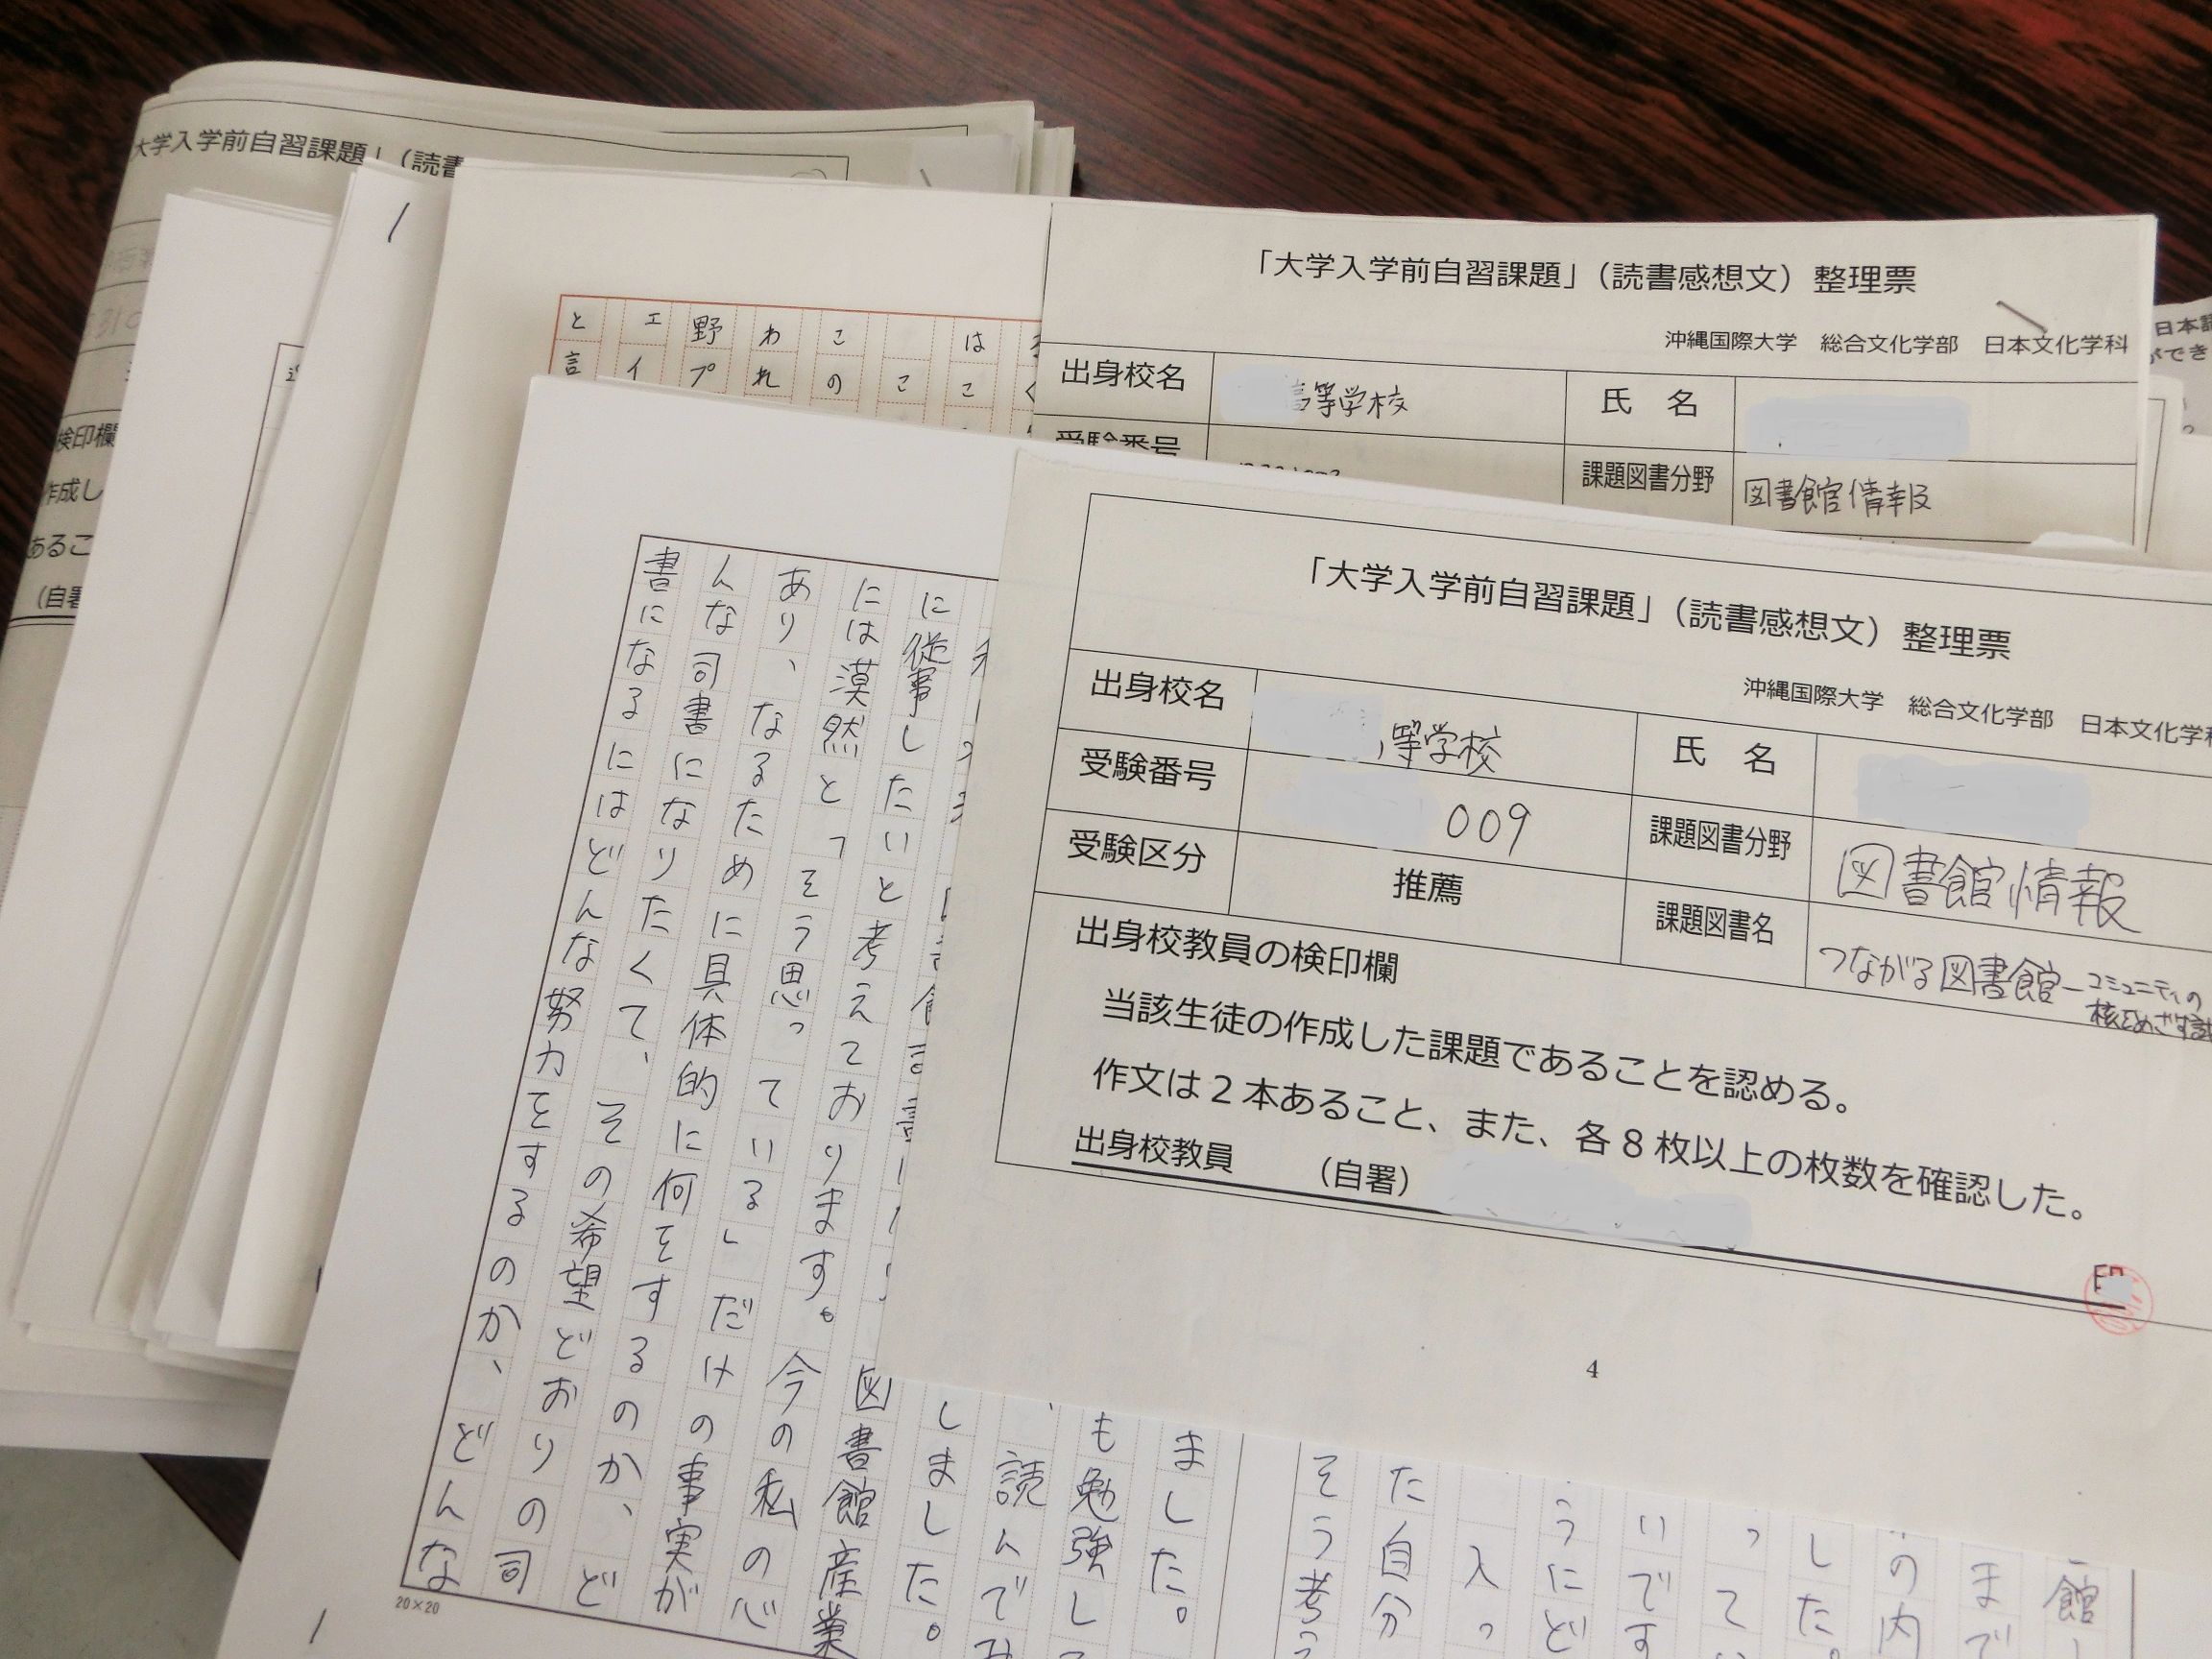 大学入学前自習課題」（読書
検印欄
作成し
あるこ
（自署
「大学入学前自習課題」（読書感想文）整理票
沖縄国際大学　総合文化学部　日本文化学科
出身校名
等学校
氏　名
受験番号
課題図書分野
図書館情報
は こ
こ
こ の
わ れ
野 プ
エ イ
と 言
「大学入学前自習課題」（読書感想文）整理票
沖縄国際大学　総合文化学部　日本文化学科
出身校名
等学校
氏　名
受験番号
009
課題図書分野
図書館情報
受験区分
推薦
課題図書名
つながる図書館－コミュニティの
核をめざす試
出身校教員の検印欄
当該生徒の作成した課題であることを認める。
作文は2本あること、また、各8枚以上の枚数を確認した。
出身校教員　（自署）
4
に従事したいと考えております。図書館産業
には漠然と「そう思っている」だけの事実が
あり、なるために具体的に何をするのか、ど
んな司書になりたくて、その希望どおりの司
書になるにはどんな努力をするのか、どんな
20×20
館
まで
の内
した。
って
いです
うにど
入っ
た自分
そう考
ました。
も勉強し
読んでみ
しました。
今の私の心
日本語
ができ